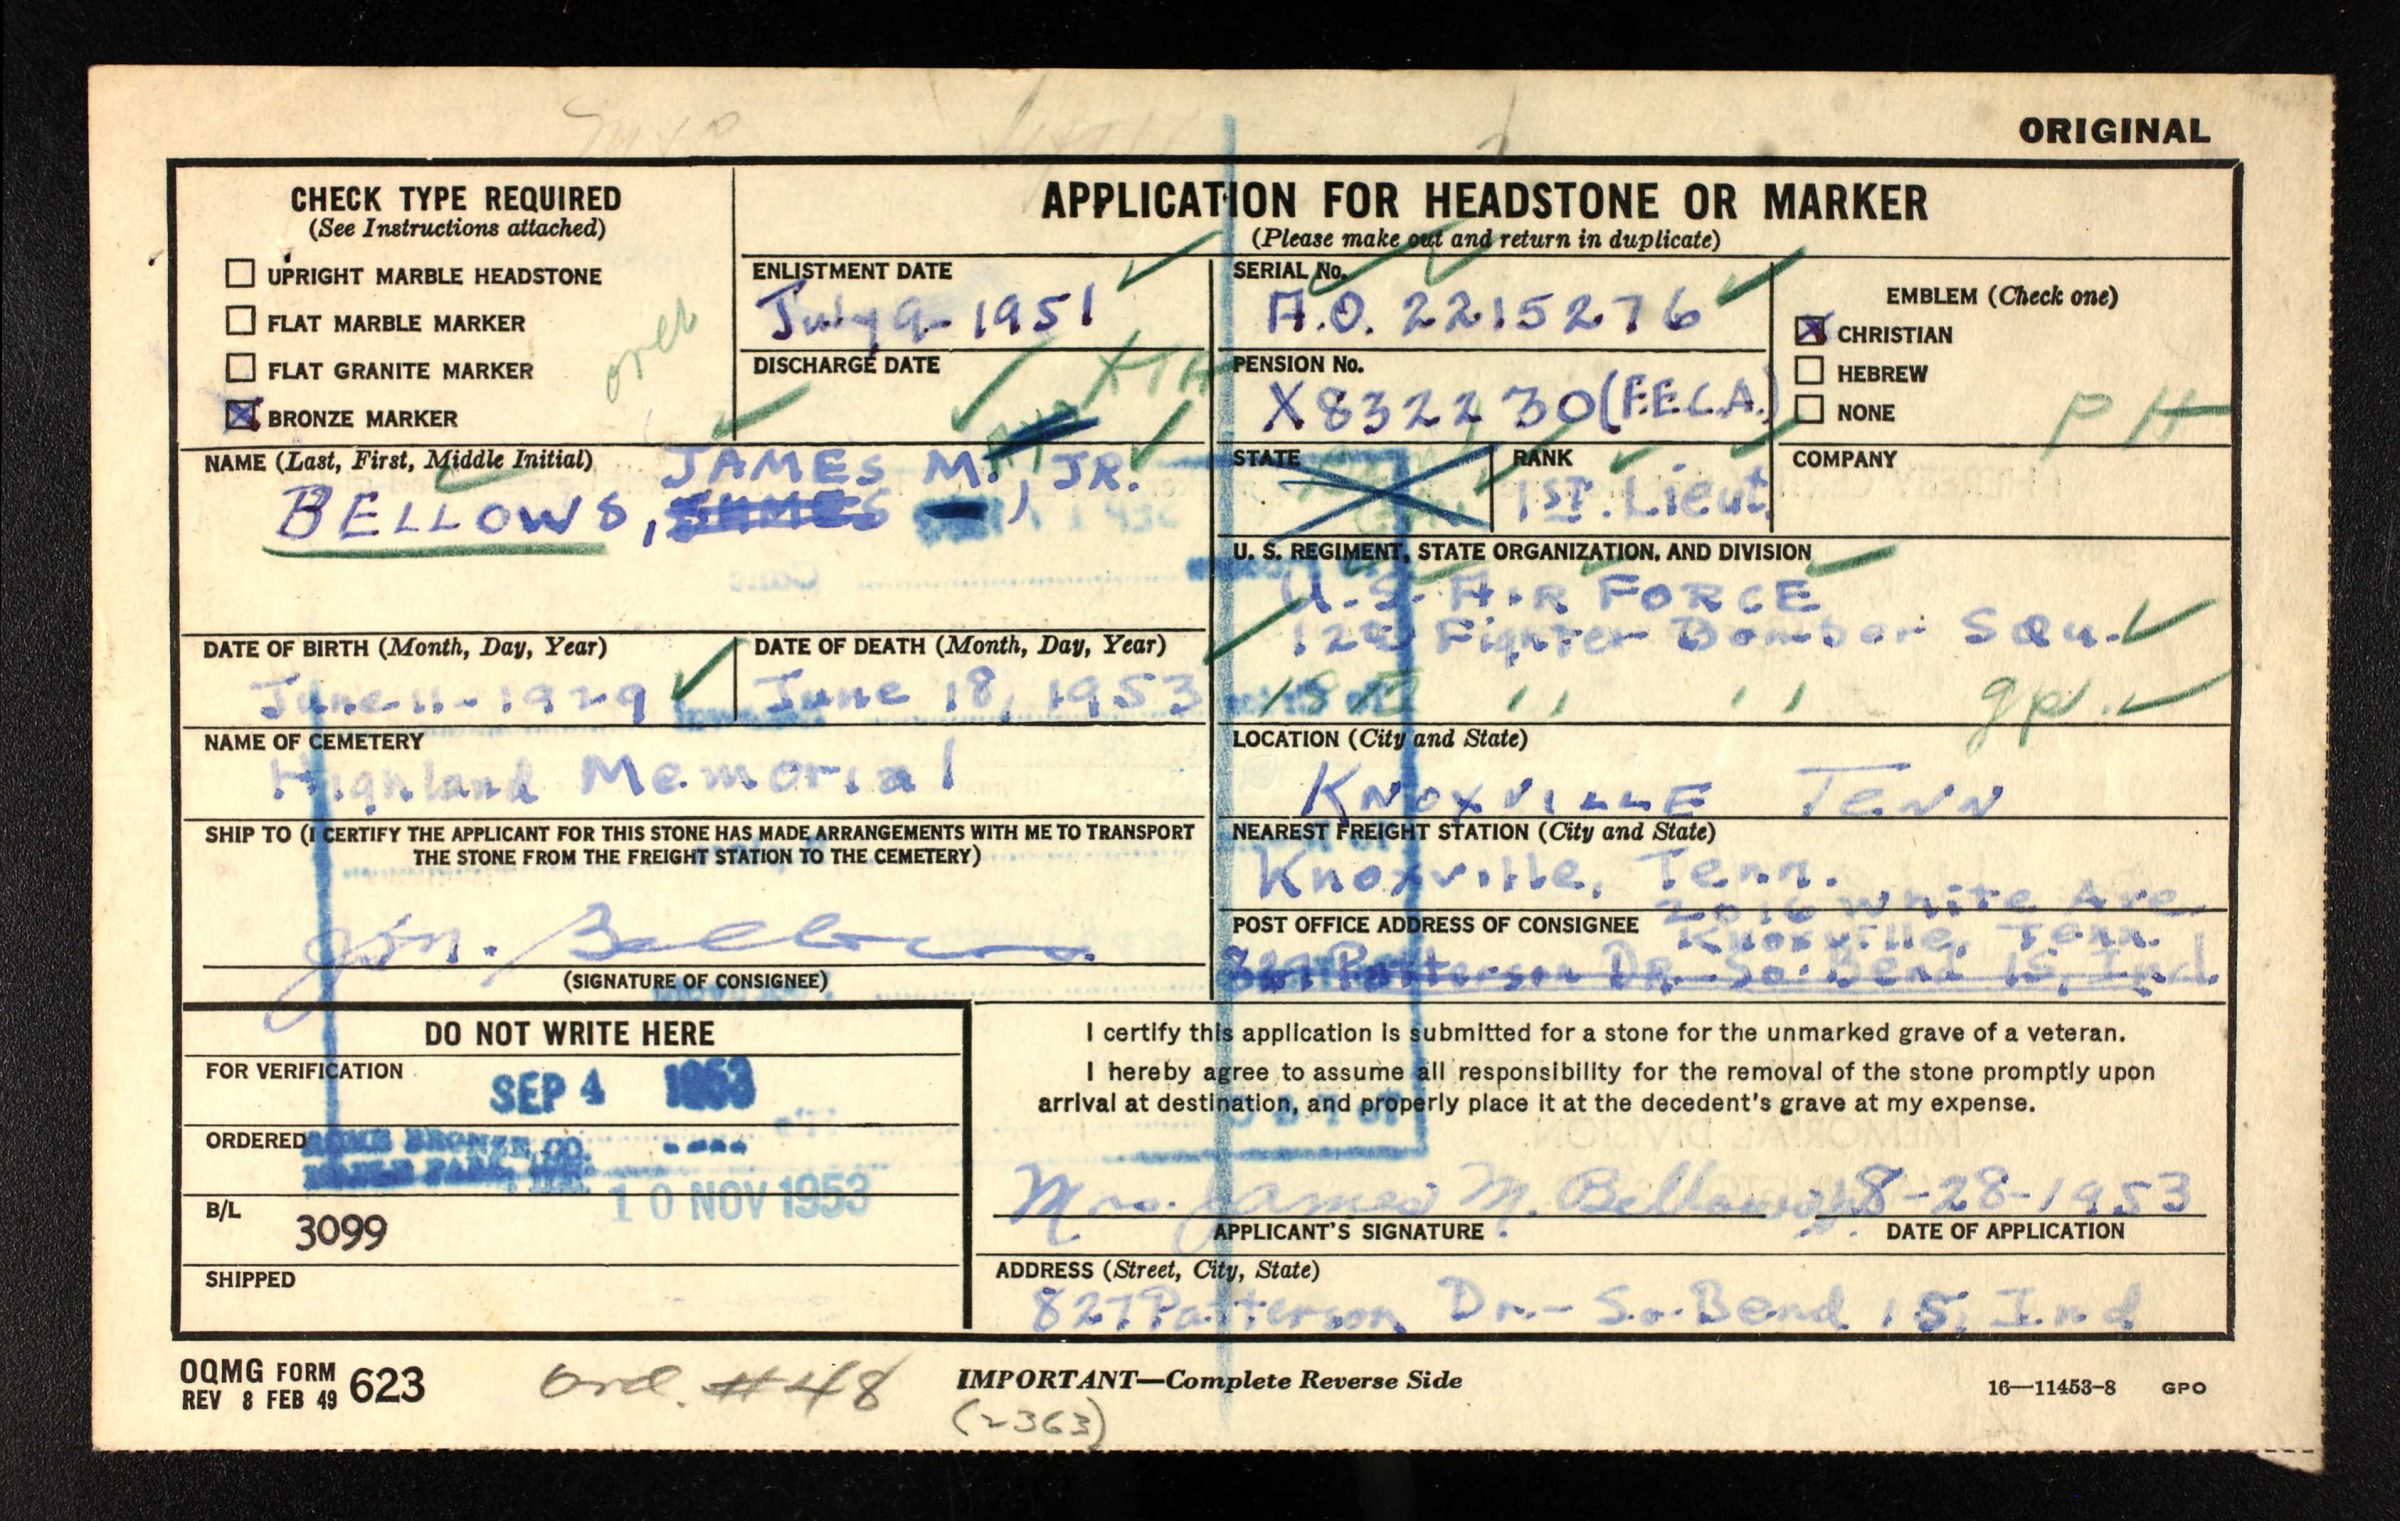 ORIGINAL
CHECK TYPE REQUIRED
(See Instructions attached)
☐ UPRIGHT MARBLE HEADSTONE
☐ FLAT MARBLE MARKER
☐ FLAT GRANITE MARKER
☒ BRONZE MARKER
over
APPLICATION FOR HEADSTONE OR MARKER
(Please make out and return in duplicate)
ENLISTMENT DATE
July 9-1951
DISCHARGE DATE
SERIAL No.
A.O. 2215276
PENSION No.
X832230 (F.E.C.A.)
EMBLEM (Check one)
☒ CHRISTIAN
☐ HEBREW
☐ NONE
PH
NAME (Last, First, Middle Initial)
JAMES M., JR.
BELLOWS,
STATE
RANK
1ST. Lieut
COMPANY
U. S. REGIMENT, STATE ORGANIZATION, AND DIVISION
U.S. AIR FORCE
12th Fighter Bomber Squ.
18th '' '' gp.
DATE OF BIRTH (Month, Day, Year)
June-11-1929
DATE OF DEATH (Month, Day, Year)
June 18, 1953
NAME OF CEMETERY
Highland Memorial
LOCATION (City and State)
KNOXVILLE TENN
SHIP TO (I CERTIFY THE APPLICANT FOR THIS STONE HAS MADE ARRANGEMENTS WITH ME TO TRANSPORT
THE STONE FROM THE FREIGHT STATION TO THE CEMETERY)
Jim. Bellows
(SIGNATURE OF CONSIGNEE)
NEAREST FREIGHT STATION (City and State)
Knoxville, Tenn.
POST OFFICE ADDRESS OF CONSIGNEE
2016 White Ave
Knoxville, Tenn.
827 Patterson Dr. So. Bend 15, Ind.
DO NOT WRITE HERE
FOR VERIFICATION
SEP 4 1953
ORDERED
ACME BRONZE CO.
10 NOV 1953
B/L
3099
SHIPPED
I certify this application is submitted for a stone for the unmarked grave of a veteran.
I hereby agree to assume all responsibility for the removal of the stone promptly upon
arrival at destination, and properly place it at the decedent's grave at my expense.
Mrs. James M. Bellows 8-28-1953
APPLICANT'S SIGNATURE
DATE OF APPLICATION
ADDRESS (Street, City, State)
827 Patterson Dr.- So. Bend 15, Ind
OQMG FORM 623
REV 8 FEB 49
Ord. #48
IMPORTANT—Complete Reverse Side
(2363)
16—11453-8 GPO